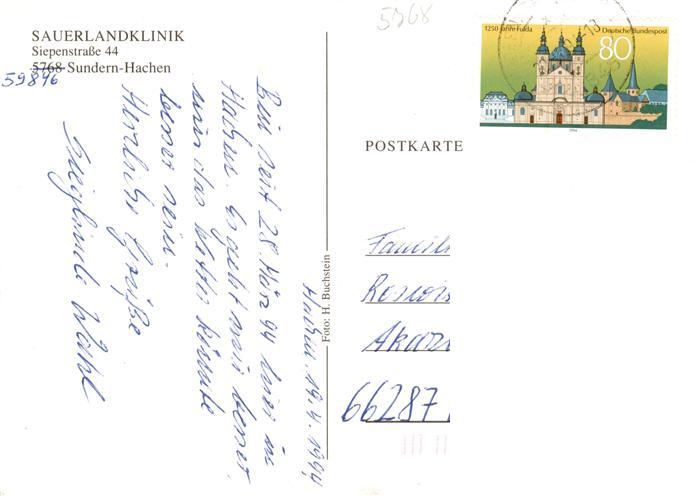 SAUERLANDKLINIK
Siepenstraße 44
5768 Sundern-Hachen
59846
5768
1250 Jahre Fulda
Deutsche Bundespost
80
1994
13
POSTKARTE
Foto: H. Buchstein
Hachen. 19.4.1994
Bin seit 28. März 94 hier in
Hachen. Es geht mir besser.
nur das Wetter könnte
besser sein.
Herzliche Grüße
Sieglinde Wahl
Famili
Akaz
66287